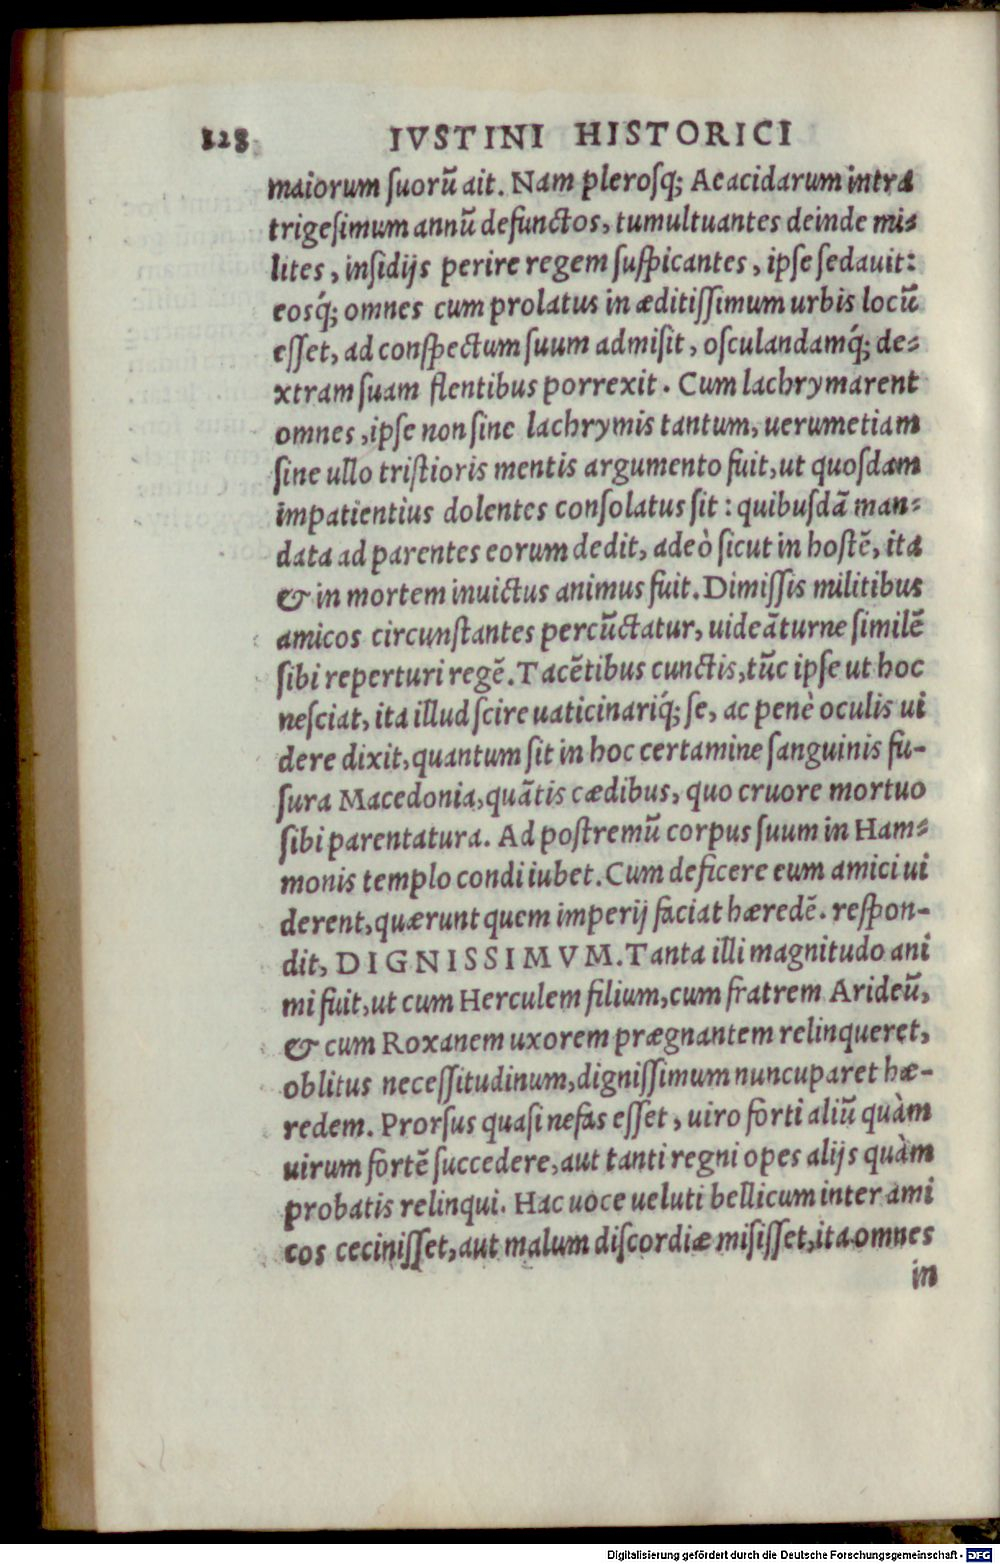 128 IVSTINI HISTORICI
maiorum suorũ ait. Nam plerosq; Aeacidarum intra
trigesimum annũ defunctos, tumultuantes deinde mi-
lites, insidijs perire regem suspicantes, ipse sedauit:
eosq́; omnes cum prolatus in æditissimum urbis locũ
esset, ad conspectum suum admisit, osculandamq́; de-
xtram suam flentibus porrexit. Cum lachrymarent
omnes, ipse non sine lachrymis tantum, uerumetiam
sine ullo tristioris mentis argumento fuit, ut quosdam
impatientius dolentes consolatus sit: quibusdã man-
data ad parentes eorum dedit, adeò sicut in hostẽ, ita
& in mortem inuictus animus fuit. Dimissis militibus
amicos circunstantes percũctatur, uideãturne similẽ
sibi reperturi regẽ. Tacẽtibus cunctis, tũc ipse ut hoc
nesciat, ita illud scire uaticinariq́; se, ac penè oculis ui
dere dixit, quantum sit in hoc certamine sanguinis fu-
sura Macedonia, quãtis cædibus, quo cruore mortuo
sibi parentatura. Ad postremũ corpus suum in Ham-
monis templo condi iubet. Cum deficere eum amici ui
derent, quærunt quem imperij faciat hæredẽ. respon-
dit, DIGNISSIMVM. Tanta illi magnitudo ani
mi fuit, ut cum Herculem filium, cum fratrem Arideũ,
& cum Roxanem uxorem prægnantem relinqueret,
oblitus necessitudinum, dignissimum nuncuparet hæ-
redem. Prorsus quasi nefas esset, uiro forti aliũ quàm
uirum fortẽ succedere, aut tanti regni opes alijs quàm
probatis relinqui. Hac uoce ueluti bellicum inter ami
cos cecinisset, aut malum discordiæ misisset, ita omnes
in
Digitalisierung gefördert durch die Deutsche Forschungsgemeinschaft - DFG